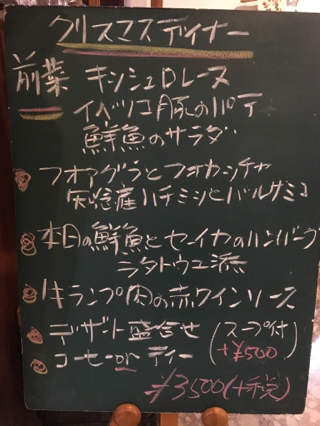 クリスマスディナー
前菜 キッシュロレーヌ
イベリコ豚のパテ
鮮魚のサラダ
フォアグラとフォカッチャ
知念産ハチミツとバルサミコ
本日の鮮魚とセーイカのハンバーグ
ラタトゥユ添
牛ランプ肉の赤ワインソース
デザート盛合せ (スープ付
コーヒーorティー +¥500)
¥3500(+税)